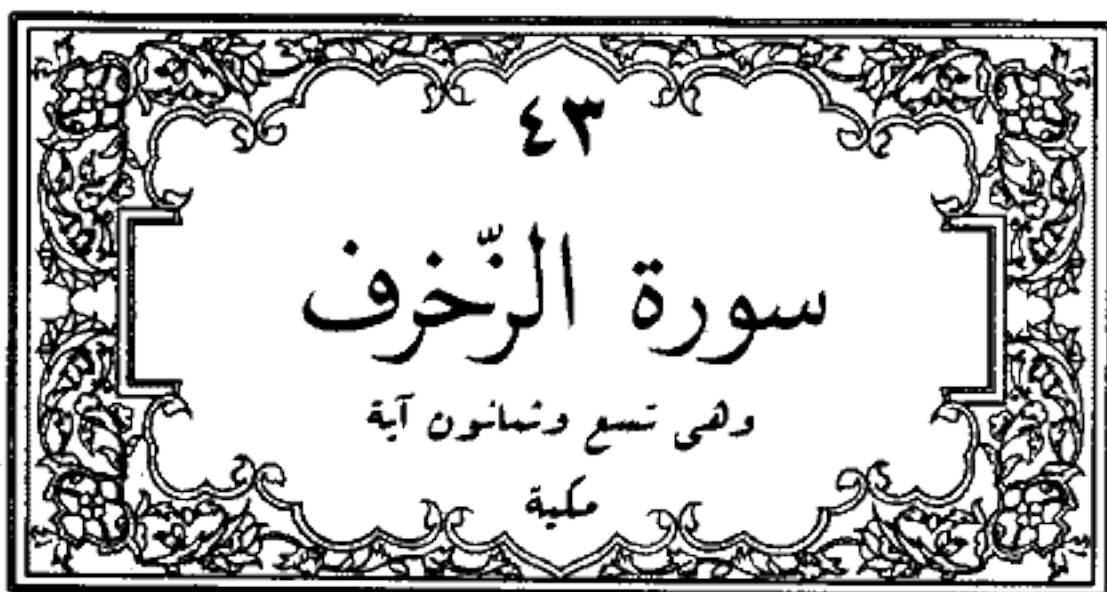 ٤٣
سورة الزّخرف
وهى تسع وثمانون آية
مكية